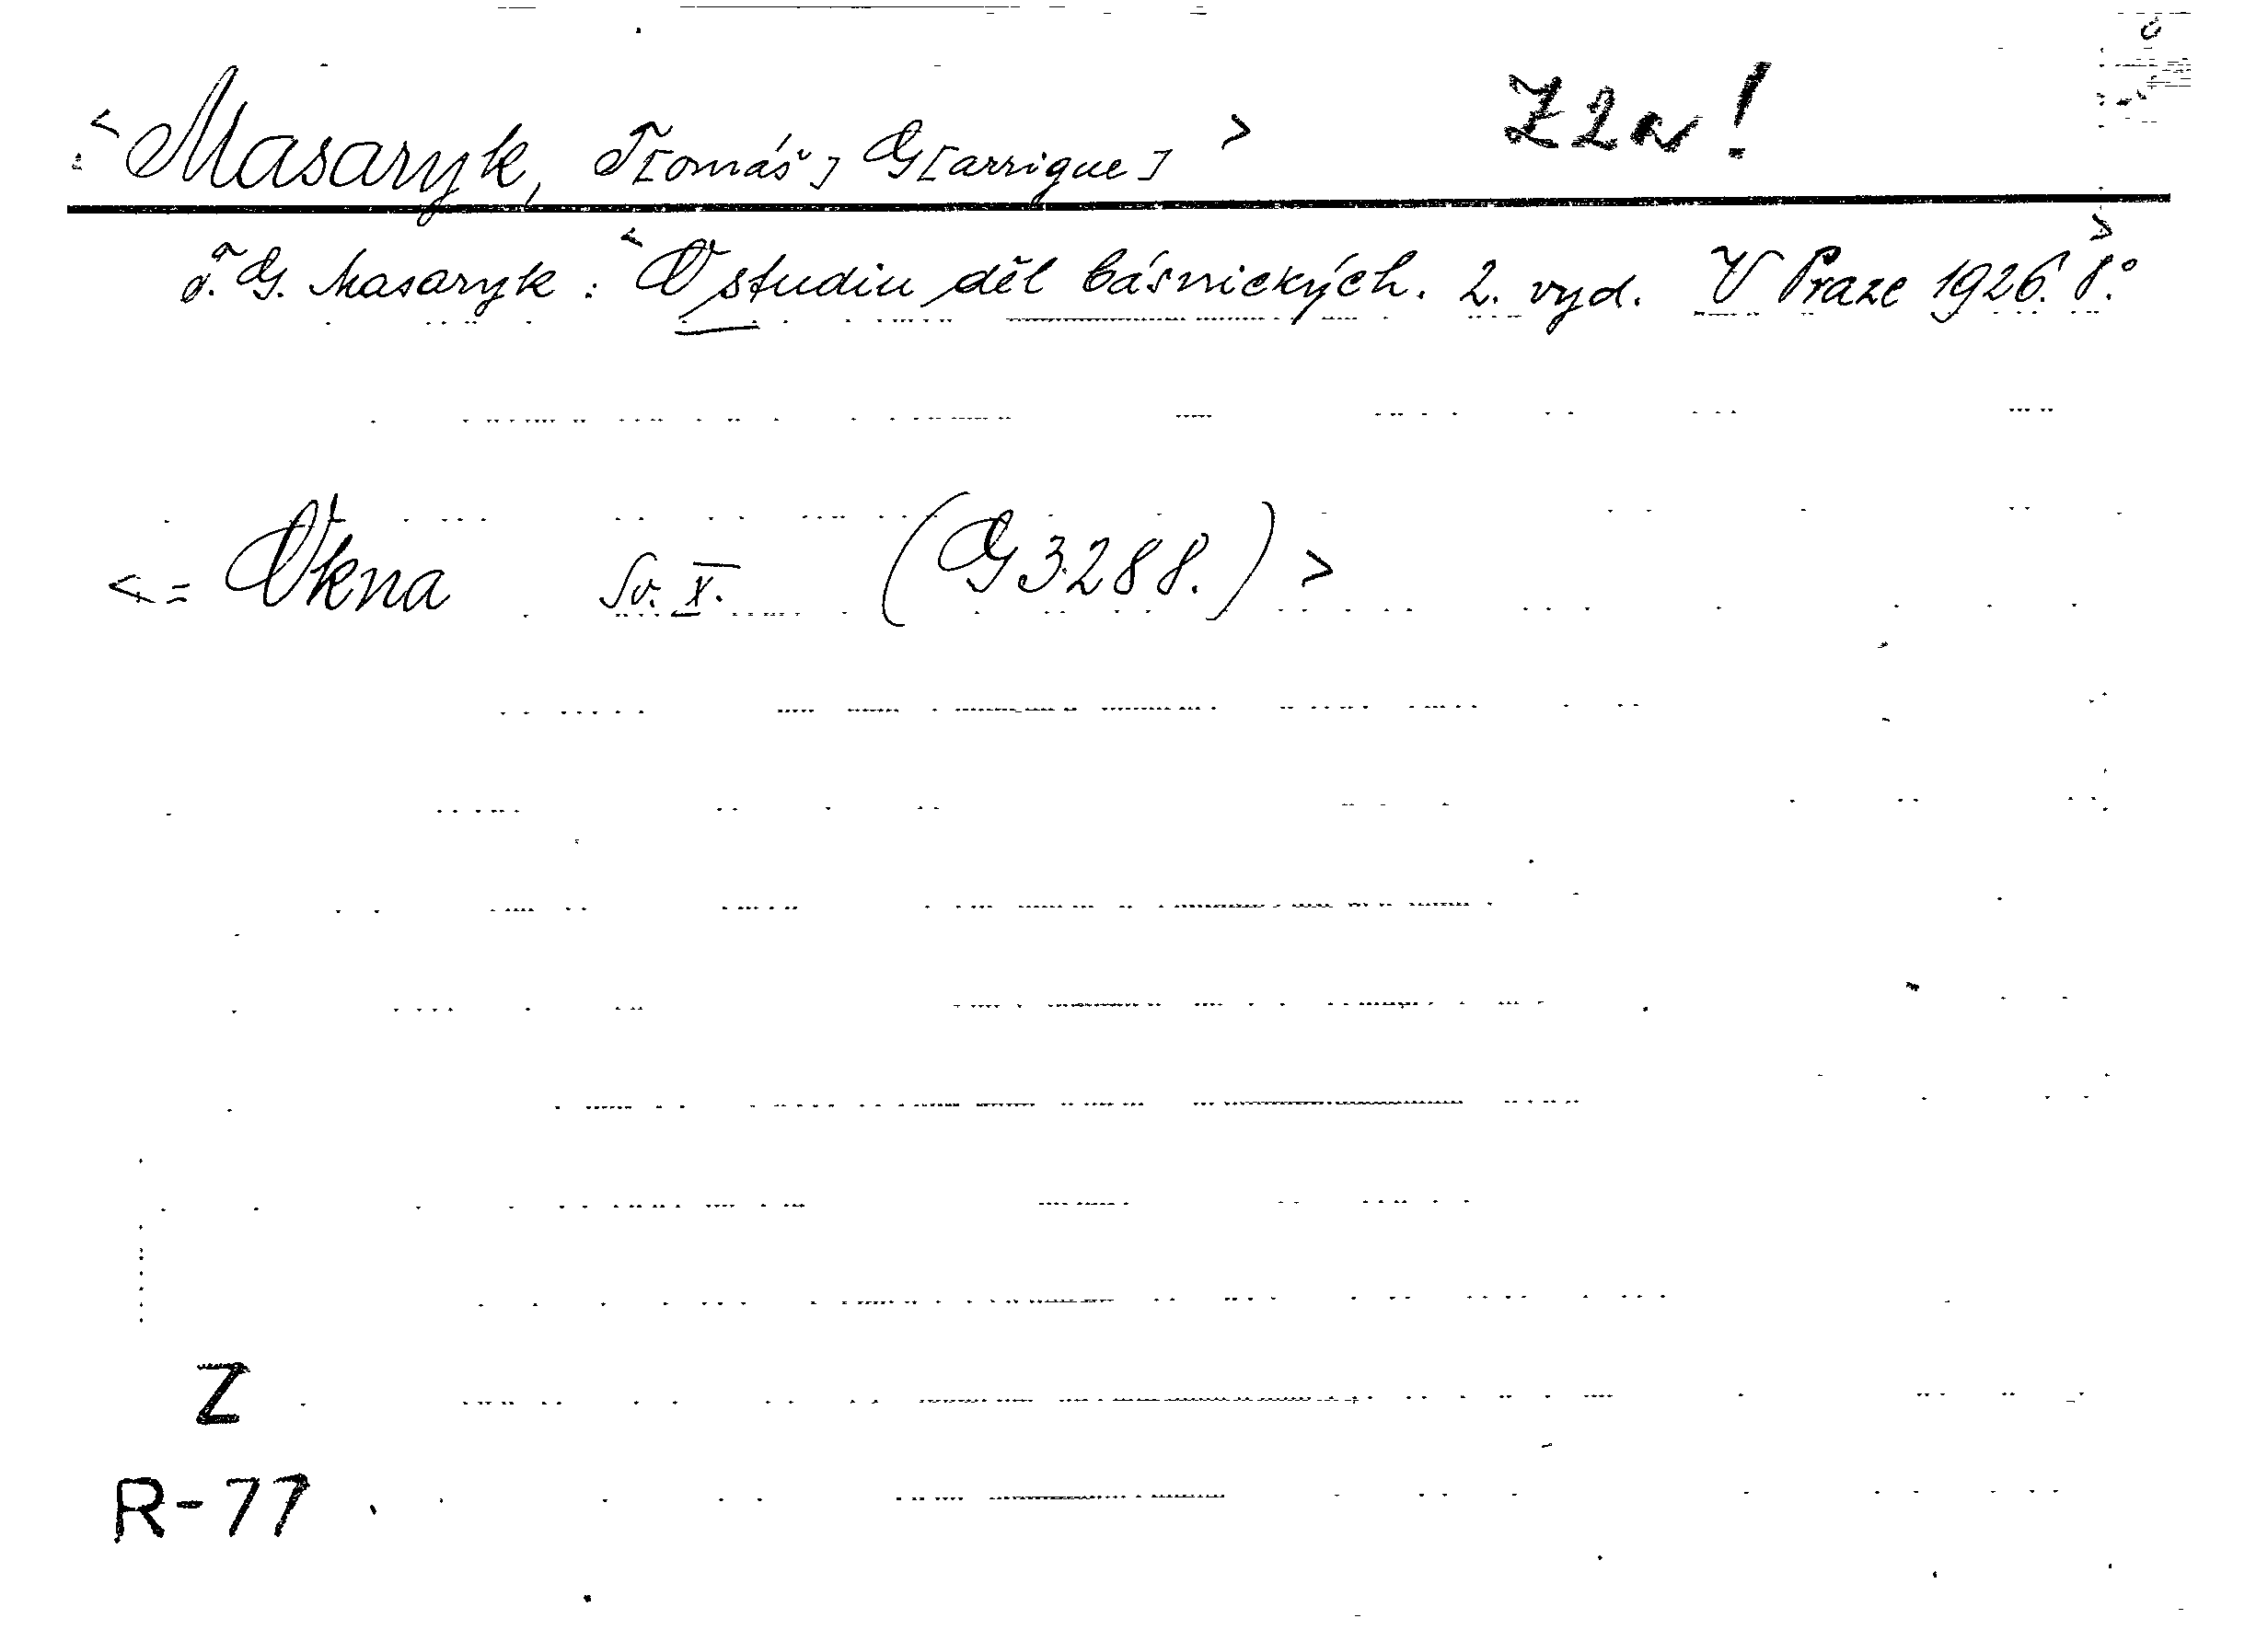 <Masaryk, T[omáš] G[arrigue]> Z2a!
T. G. Masaryk: <O studiu děl básnických. 2. vyd. V Praze 1926. 8.°>
<= Okna Sv. X. (G 3288.)>
Z
R-77